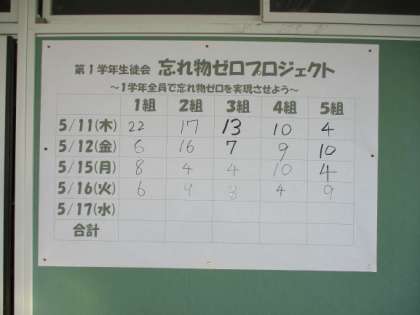 第1学年生徒会 忘れ物ゼロプロジェクト
～1学年全員で忘れ物ゼロを実現させよう～
1組 2組 3組 4組 5組
5/11(木) 22 17 13 10 4
5/12(金) 6 16 7 9 10
5/15(月) 8 4 4 10 4
5/16(火) 6 4 3 4 9
5/17(水)
合計